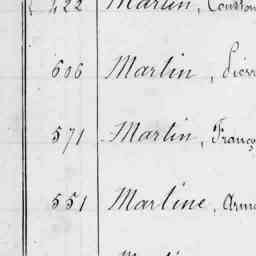 422 Martin,
606 Martin, Pierr
571 Martin, Franço
551 Martine, Arma